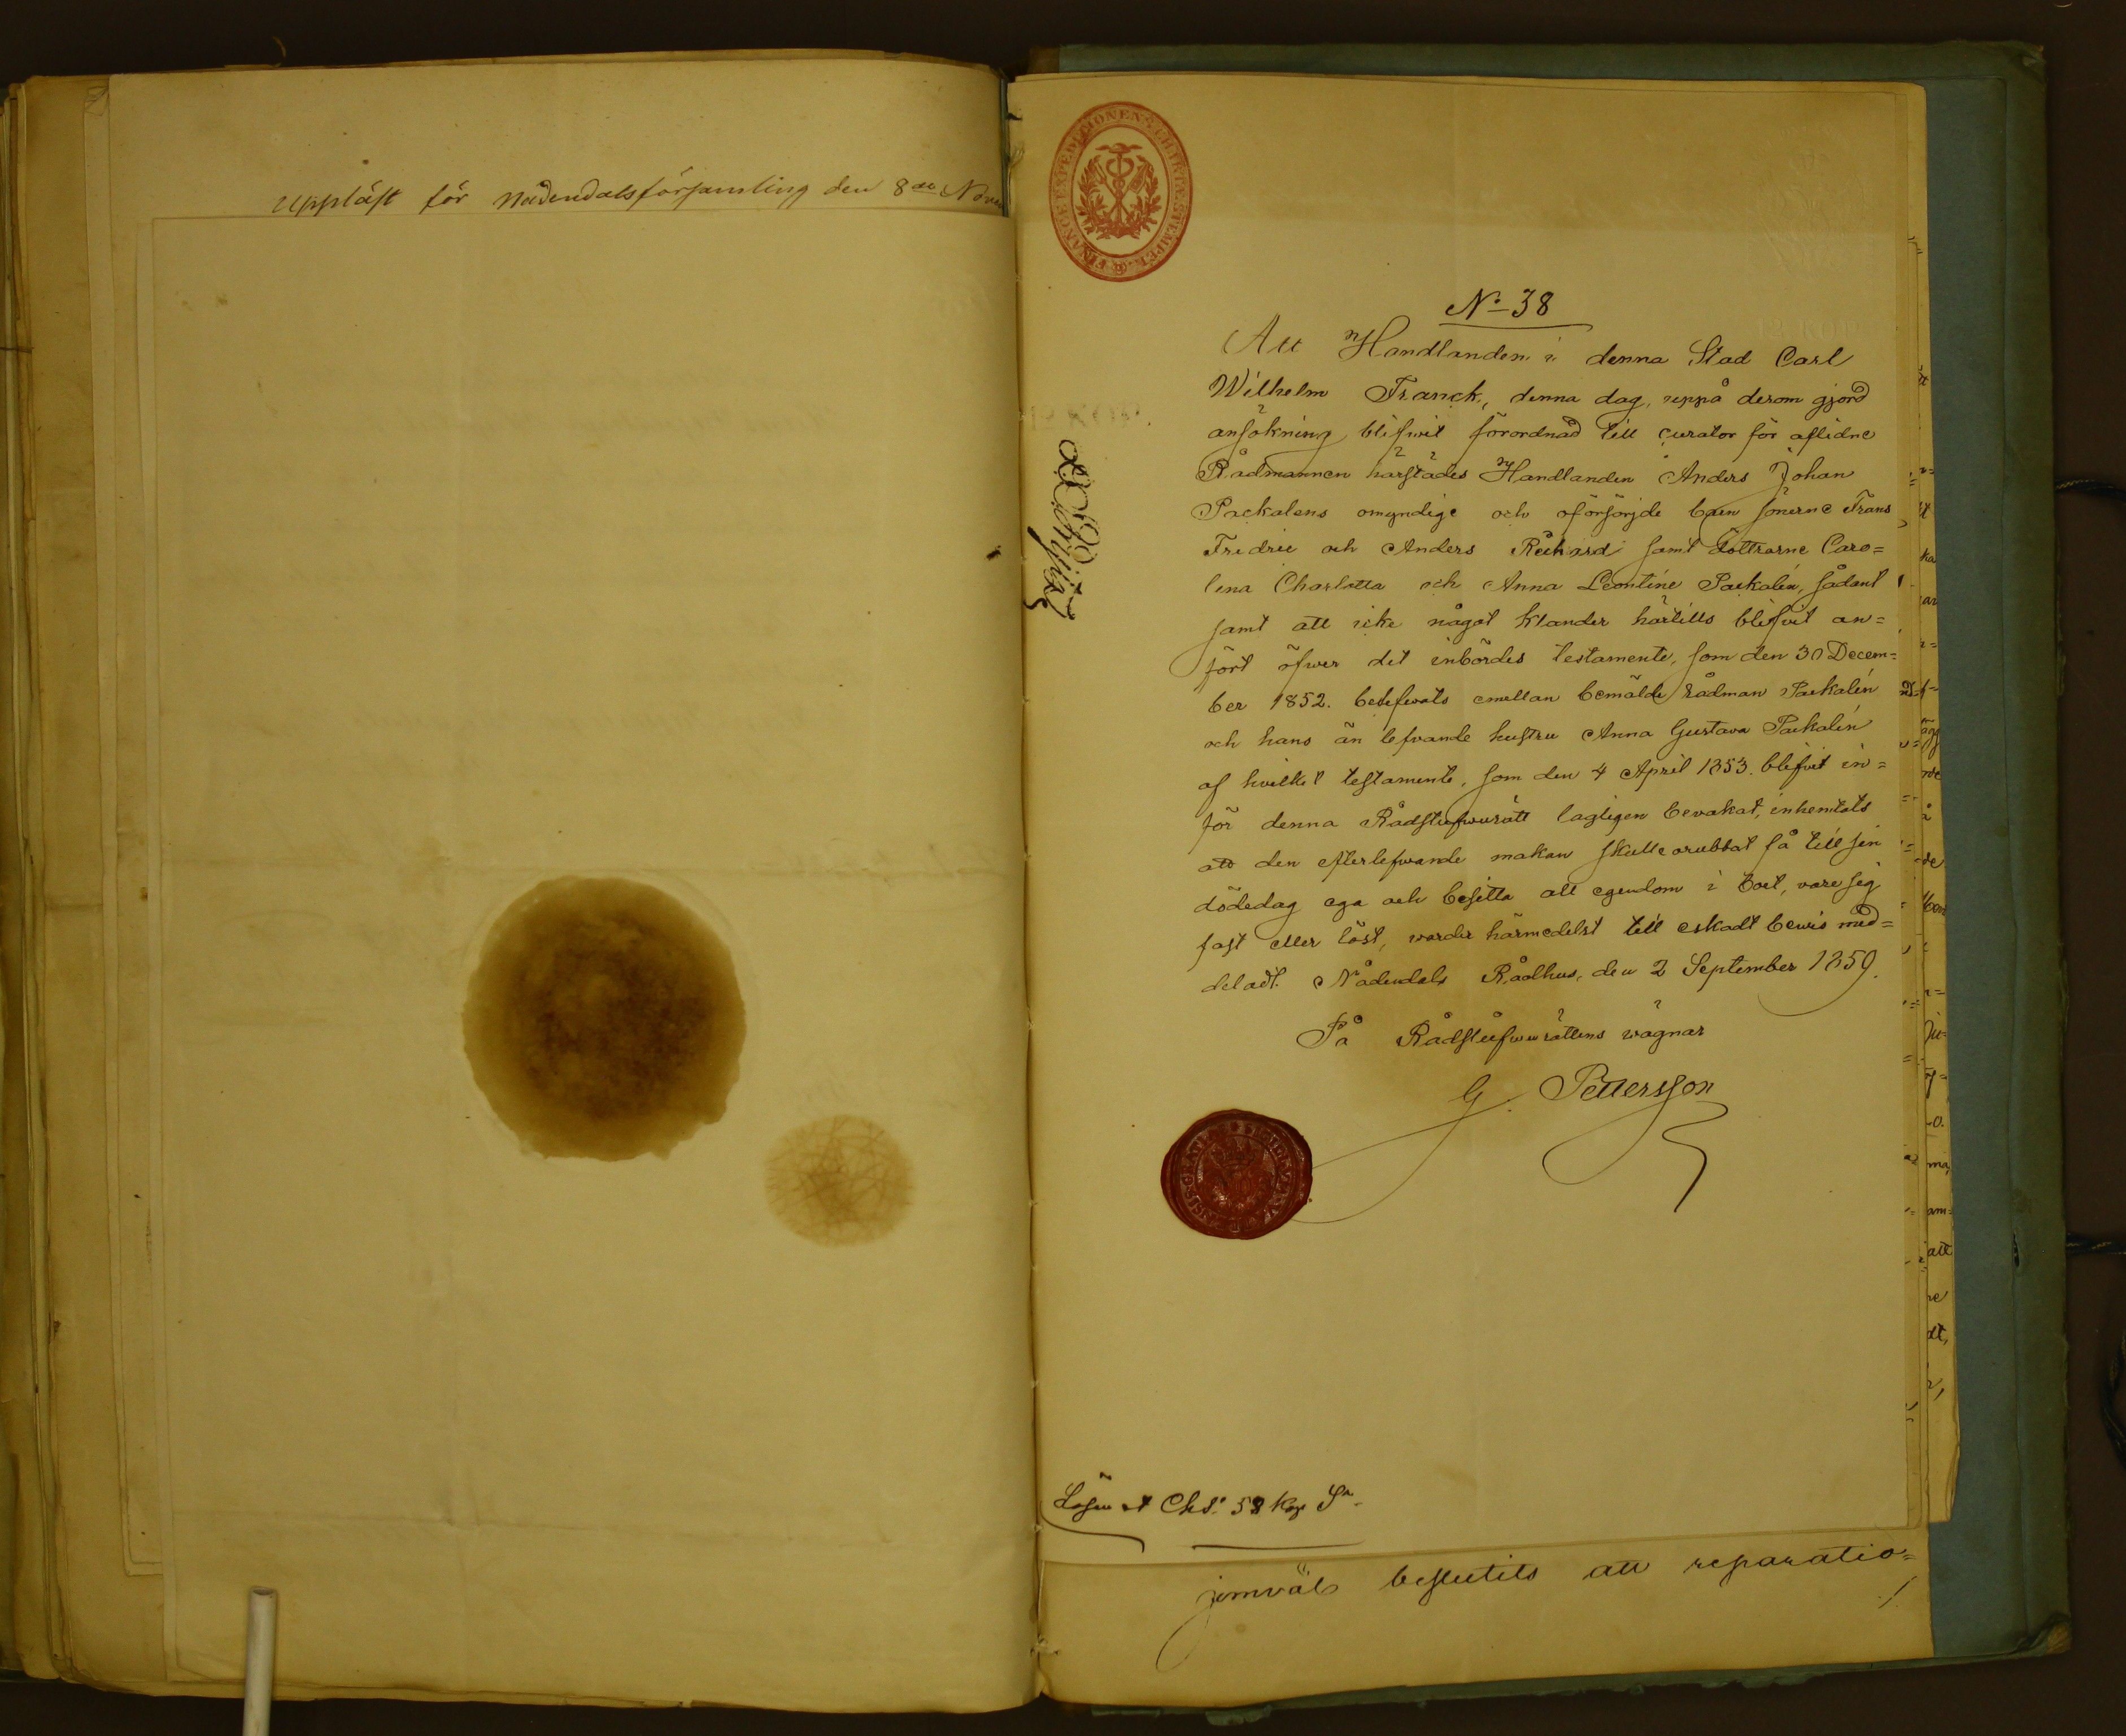 Uppläst för Nådendals församling den 8de Novem
FINANCE EXPEDITIONENS CHARTÆ STEMPEL
No 38
Att Handlanden i denna Stad Carl
Wilhelm Franck, denna dag, uppå derom gjord
ansökning blifwit förordnad till curator för aflidne
Rådmannen härstädes Handlanden Anders Johan
Packalens omyndige och oförsörjde barn sönerne Frans
Fredric och Anders Richard samt döttrarne Caro=
lina Charlotta och Anna Leontine Packalén, sådant
samt att icke något klander härtills blifvit an=
fört öfwer det inbördes testamente, som den 30 Decem=
ber 1852. bebrefwats emellan bemälde rådman Packalén
och hans än lefvande hustru Anna Gustava Packalén
af hvilket testamente, som den 4 April 1853. blifvit in=
för denna Rådstufwurätt lagligen bevakat, inhemtats
att den efterlefwande makan skulle orubbat få till sin
dödedag ega och besitta all egendom i boet, vare sig
fast eller löst, warder härmedelst till eskadt bewis med=
deladt. Nådendals Rådhus, den 2 September 1859.
På Rådstufwurättens wägnar
G. Pettersson
Lösen et Chs: 58 kop Sr
jemväl beslutits att reparatio=